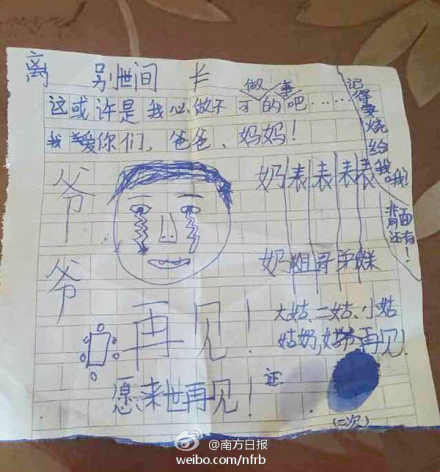 离 别世间 长
做事
这或许是我必做不可的吧……
我爱你们，爸爸、妈妈！
记得要烧给我哦！
背面还有！
爷爷
奶奶
表姐
表哥
表弟
表妹
大姑、二姑、小姑
姑奶，姑爷再见！
再见！
愿来世再见！
证
(二次)
@南方日报
weibo.com/nfrb